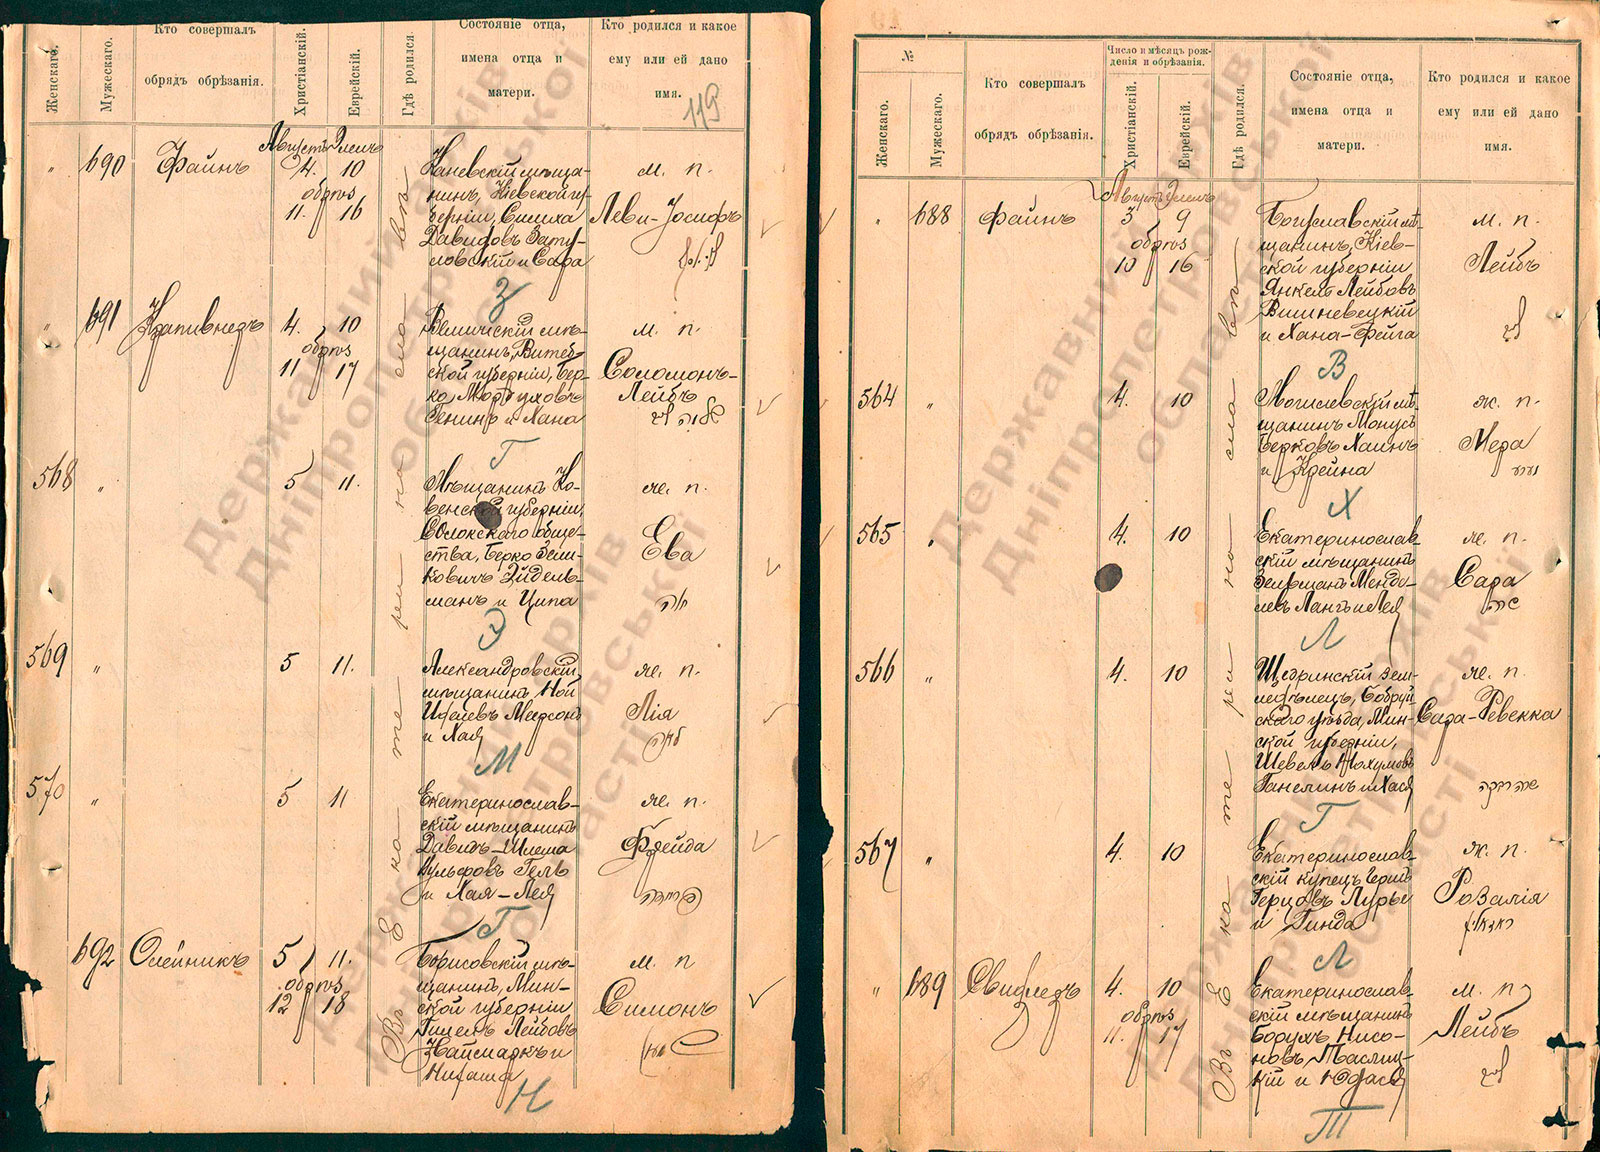 Женскаго.
Мужескаго.
Кто совершалъ
обрядъ обрѣзанія.
Христіанскій.
Еврейскій.
Гдѣ родился.
Состояніе отца,
имена отца и
матери.
Кто родился и какое
ему или ей дано
имя.
119
Августъ
"
690
Файнъ
4. 10
11. 16
Каневскій мѣща-
нинъ, Кіевской гу-
берніи, Симха
Давидовъ Зату-
ловскій и Сара
м. п.
Леви-Іосифъ
З
"
691
4. 10
11 17
щанинъ, Витеб-
ской губерніи, Бер-
м. п.
Соломонъ-
Лейбъ
Г
568
"
5 11.
Мѣщанинъ Ко-
венской губерніи,
обще-
ства, Берко Зели-
ковичъ Эйдель-
манъ и Ципа
же. п.
Ева
Э
569
"
5 11.
Александровскій
мѣщанинъ Ной
Меерсонъ
и Хая
же. п.
Лія
М
570
"
5 11
Екатеринослав-
скій мѣщанинъ
Давидъ-Шлема
Вульфовъ Гель
и Хая-Лея
же. п.
Фрейда
Г
692
Олейникъ
5 11.
12 18
Борисовскій мѣ-
щанинъ, Мин-
ской губерніи
Гимель Лейбовъ
Наймаркъ и
м. п
Симонъ
Н
Въ Екатеринославѣ
№
Женскаго.
Мужескаго.
Кто совершалъ
обрядъ обрѣзанія.
Число и мѣсяцъ рож-
денія и обрѣзанія.
Христіанскій.
Еврейскій.
Гдѣ родился.
Состояніе отца,
имена отца и
матери.
Кто родился и какое
ему или ей дано
имя.
Августъ
"
688
Файнъ
3 9
10 16
Богуславскій мѣ-
щанинъ, Кіев-
ской губерніи
Янкель Лейбовъ
Вишневецкій
и Хана-Фейга
м. п.
Лейбъ
В
564
"
4. 10
Могилевскій мѣ-
щанинъ Монусъ
Берковъ Хаинъ
и Крейна
же. п.
Мера
Х
565
"
4. 10
Екатеринослав-
скій мѣщанинъ
Менде-
левъ Лангъ и Лея
же. п.
Сара
Л
566
"
4. 10
Щедринскій зем-
ледѣлецъ, Бобруй-
скаго уѣзда, Мин-
ской губерніи,
Шевель Нохумовъ
Ганелинъ и Хася
же. п.
Сара-Ревекка
Г
567
"
4. 10
Екатеринослав-
скій купецъ
Герцовъ Лурье
и Гинда
же. п.
Розалія
Л
"
689
4. 10
11. 17
Екатеринослав-
скій мѣщанинъ
Борухъ Нисо-
новъ Таслиц-
кій и
м. п
Лейбъ
Т
Въ Екатеринославѣ
Державний архів
Дніпропетровської
області